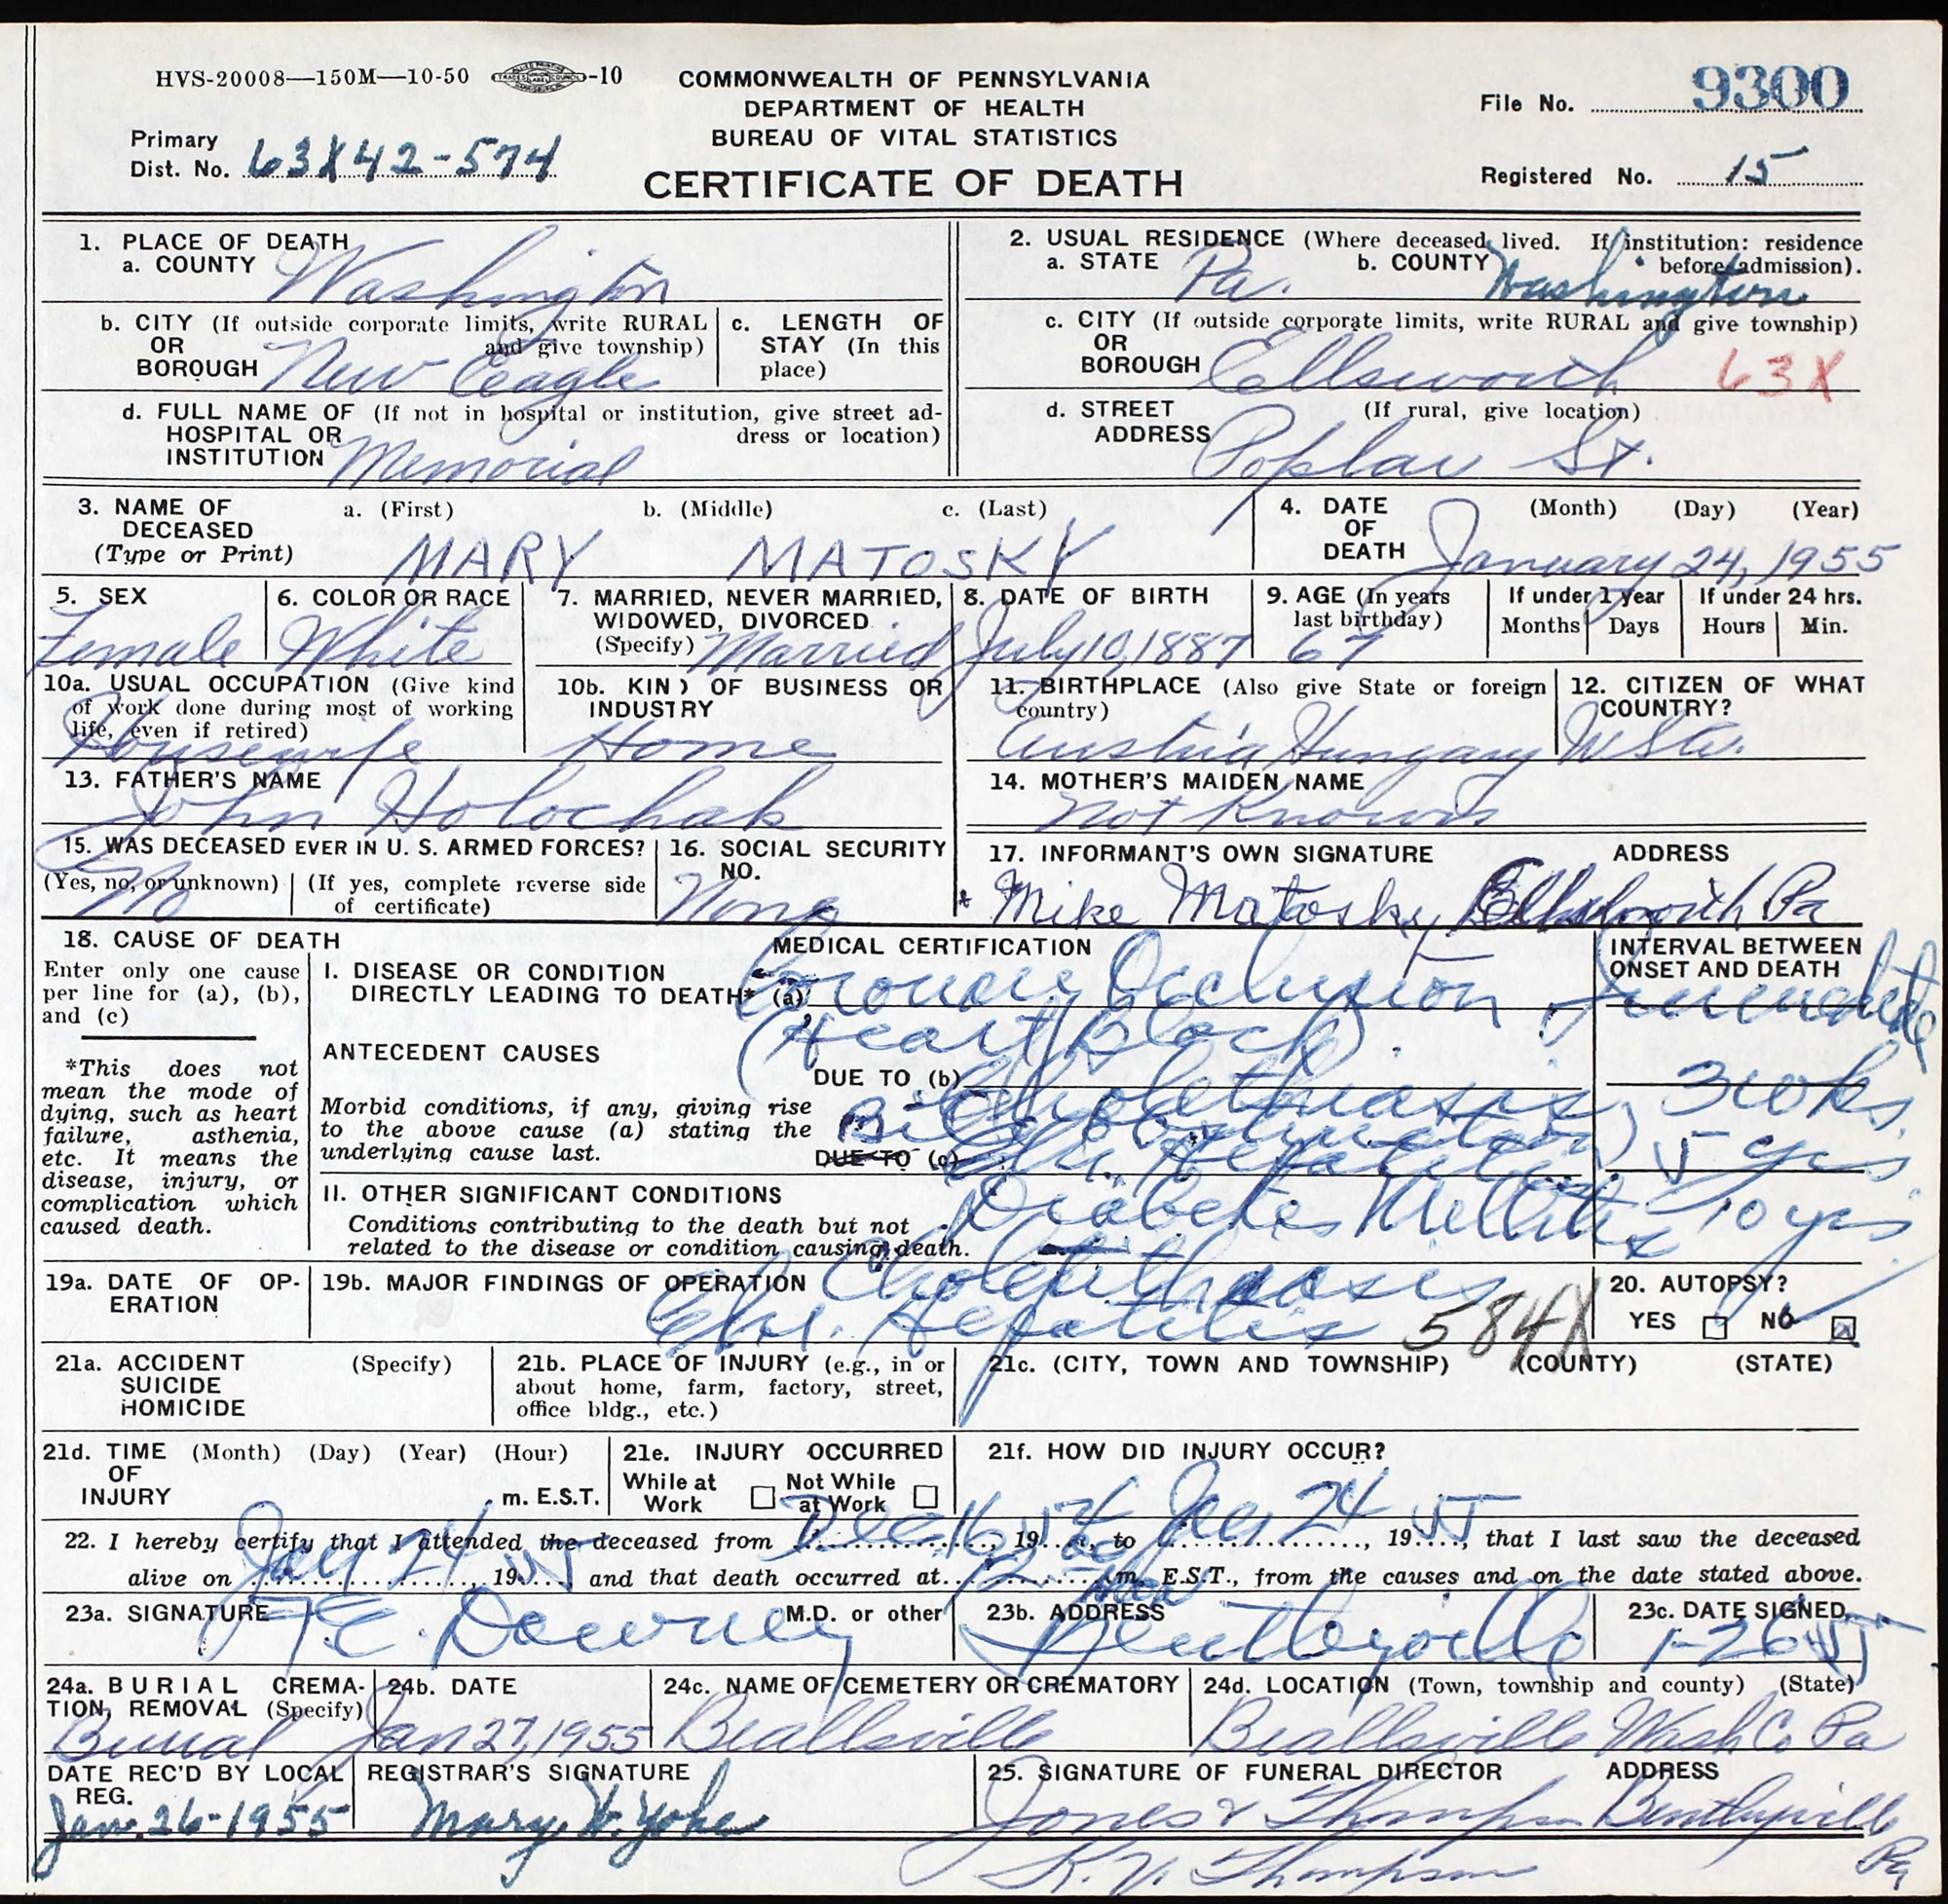 HVS-20008—150M—10-50 -10
COMMONWEALTH OF PENNSYLVANIA
DEPARTMENT OF HEALTH
BUREAU OF VITAL STATISTICS
CERTIFICATE OF DEATH
File No. 9300
Primary
Dist. No. 63X42-574
Registered No. 15
1. PLACE OF DEATH
a. COUNTY Washington
b. CITY (If outside corporate limits, write RURAL
OR and give township)
BOROUGH New Eagle
c. LENGTH OF
STAY (In this
place)
d. FULL NAME OF (If not in hospital or institution, give street ad-
HOSPITAL OR dress or location)
INSTITUTION Memorial
2. USUAL RESIDENCE (Where deceased lived. If institution: residence
before admission).
a. STATE Pa. b. COUNTY Washington
c. CITY (If outside corporate limits, write RURAL and give township)
OR
BOROUGH Ellsworth 63X
d. STREET (If rural, give location)
ADDRESS Poplar St.
3. NAME OF a. (First) b. (Middle) c. (Last)
DECEASED
(Type or Print) MARY MATOSKY
4. DATE (Month) (Day) (Year)
OF
DEATH January 24, 1955
5. SEX
Female
6. COLOR OR RACE
White
7. MARRIED, NEVER MARRIED,
WIDOWED, DIVORCED
(Specify) Married
8. DATE OF BIRTH
July 10, 1887
9. AGE (In years
last birthday)
67
If under 1 year
Months Days
If under 24 hrs.
Hours Min.
10a. USUAL OCCUPATION (Give kind
of work done during most of working
life, even if retired)
Housewife
10b. KIND OF BUSINESS OR
INDUSTRY
Home
11. BIRTHPLACE (Also give State or foreign
country)
Austria Hungary
12. CITIZEN OF WHAT
COUNTRY?
USA.
13. FATHER'S NAME
John Holochak
14. MOTHER'S MAIDEN NAME
Not Known
15. WAS DECEASED EVER IN U. S. ARMED FORCES?
(Yes, no, or unknown) (If yes, complete reverse side
of certificate)
No
16. SOCIAL SECURITY
NO.
None
17. INFORMANT'S OWN SIGNATURE ADDRESS
Mike Matosky Ellsworth Pa
18. CAUSE OF DEATH
Enter only one cause
per line for (a), (b),
and (c)
*This does not
mean the mode of
dying, such as heart
failure, asthenia,
etc. It means the
disease, injury, or
complication which
caused death.
MEDICAL CERTIFICATION
I. DISEASE OR CONDITION
DIRECTLY LEADING TO DEATH* (a) Coronary Occlusion
(Heart Block)
ANTECEDENT CAUSES
DUE TO (b) Cholelithiasis,
Morbid conditions, if any, giving rise
to the above cause (a) stating the
underlying cause last.
Bile Obstruction)
DUE TO (c) Chr. Hepatitis
II. OTHER SIGNIFICANT CONDITIONS
Conditions contributing to the death but not
related to the disease or condition causing death.
Diabetes Mellitus
INTERVAL BETWEEN
ONSET AND DEATH
Immediate
3 wks.
5 yrs.
10 yrs
19a. DATE OF OP-
ERATION
19b. MAJOR FINDINGS OF OPERATION Cholelithiasis
Chr. Hepatitis 584X
20. AUTOPSY?
YES NO
21a. ACCIDENT (Specify)
SUICIDE
HOMICIDE
21b. PLACE OF INJURY (e.g., in or
about home, farm, factory, street,
office bldg., etc.)
21c. (CITY, TOWN AND TOWNSHIP) (COUNTY) (STATE)
21d. TIME (Month) (Day) (Year) (Hour)
OF
INJURY m. E.S.T.
21e. INJURY OCCURRED
While at Not While
Work at Work
21f. HOW DID INJURY OCCUR?
22. I hereby certify that I attended the deceased from Dec 16, 1954, to Jan 24, 1955, that I last saw the deceased
alive on Jan 24, 1955 and that death occurred at 12 m. E.S.T., from the causes and on the date stated above.
23a. SIGNATURE M.D. or other
E. Downey
23b. ADDRESS
Bentleyville
23c. DATE SIGNED
1-26-55
24a. BURIAL CREMA-
TION, REMOVAL (Specify)
Burial
24b. DATE
Jan 27, 1955
24c. NAME OF CEMETERY OR CREMATORY
Beallsville
24d. LOCATION (Town, township and county) (State)
Beallsville Wash Co Pa
DATE REC'D BY LOCAL
REG.
Jan. 26-1955
REGISTRAR'S SIGNATURE
Mary H. Yohe
25. SIGNATURE OF FUNERAL DIRECTOR ADDRESS
Jones & Thompson Bentleyville
Pa
K. V. Thompson